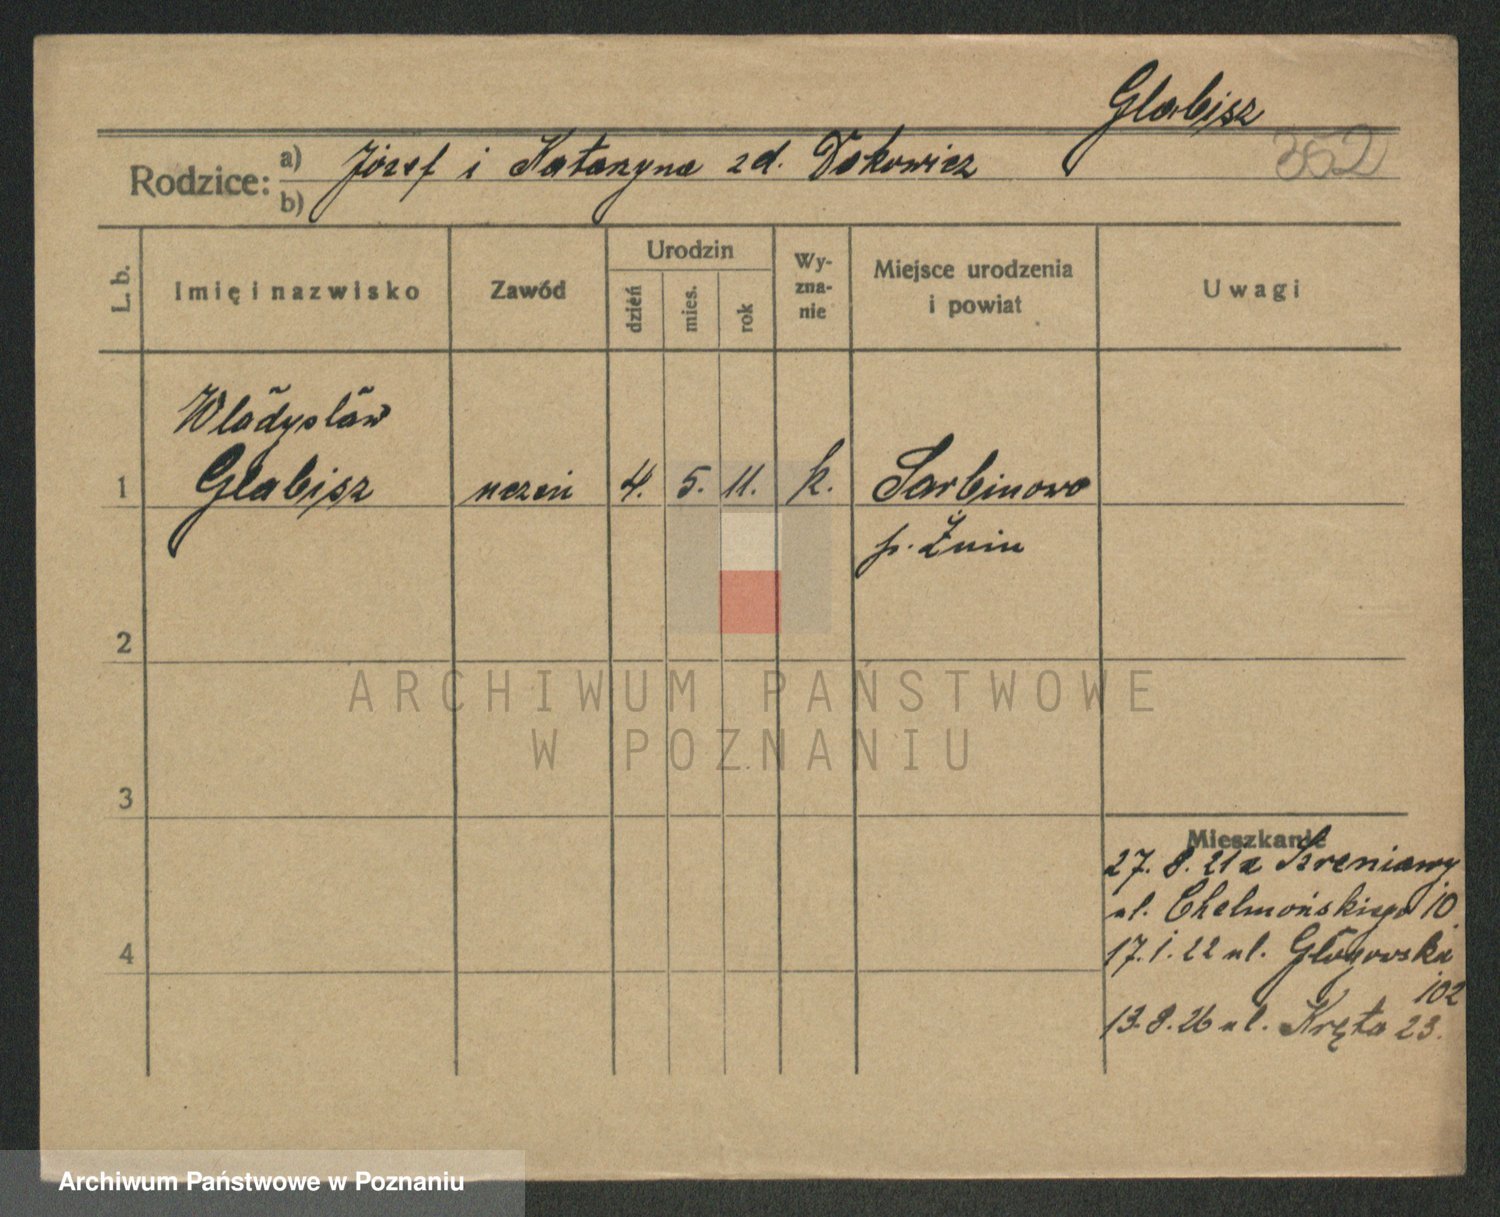 Glabisz
352
Rodzice: a) Józef i Katarzyna zd. Dokowicz
b)
L. b.
Imię i nazwisko
Zawód
Urodzin
dzień
mies.
rok
Wy-
zna-
nie
Miejsce urodzenia
i powiat
Uwagi
Władysław
1 Glabisz uczeń 4. 5. 11. k. Sarbinowo
p. Żnin
2
3
4
ARCHIWUM PAŃSTWOWE
W POZNANIU
Mieszkanie
27. 8. 21 z Kreniawy
ul. Chełmońskiego 10
17. 1. 22 ul. Głogowska
102
13. 8. 26 ul. Kręta 23.
Archiwum Państwowe w Poznaniu